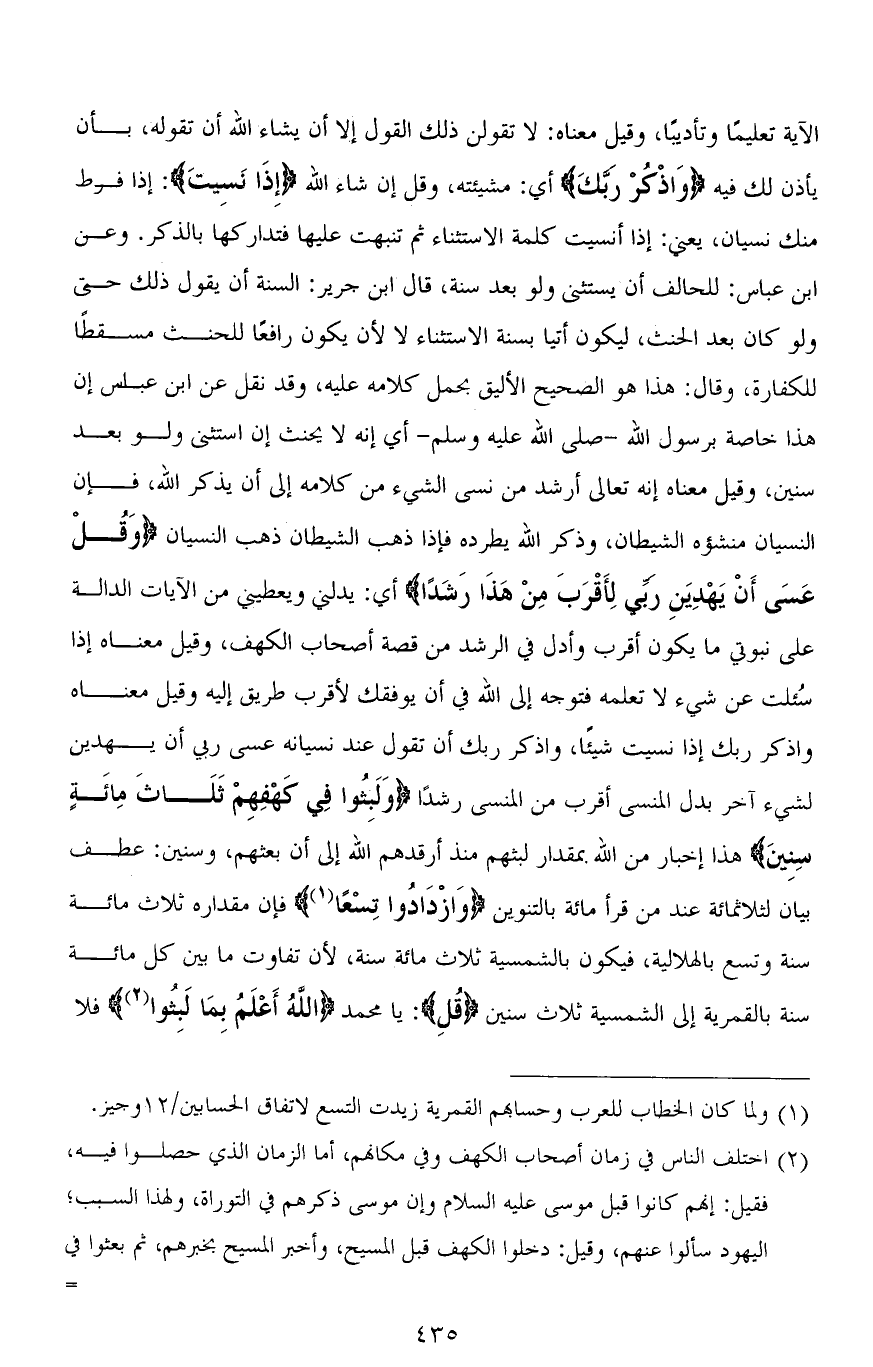 الآية تعليمًا وتأديبًا، وقيل معناه: لا تقولن ذلك القول إلا أن يشاء الله أن تقوله، بأن
يأذن لك فيه ﴿وَاذْكُرْ رَبَّكَ﴾ أي: مشيئته، وقل إن شاء الله ﴿إِذَا نَسِيتَ﴾: إذا فرط
منك نسيان، يعني: إذا أنسيت كلمة الاستثناء ثم تنبهت عليها فتداركها بالذكر. وعن
ابن عباس: للحالف أن يستثنى ولو بعد سنة، قال ابن جرير: السنة أن يقول ذلك حتى
ولو كان بعد الحنث، ليكون أتيا بسنة الاستثناء لا لأن يكون رافعًا للحنث مسقطًا
للكفارة، وقال: هذا هو الصحيح الأليق بحمل كلامه عليه، وقد نقل عن ابن عباس إن
هذا خاصة برسول الله -صلى الله عليه وسلم- أي إنه لا يحنث إن استثنى ولو بعد
سنين، وقيل معناه إنه تعالى أرشد من نسى الشيء من كلامه إلى أن يذكر الله، فإن
النسيان منشؤه الشيطان، وذكر الله يطرده فإذا ذهب الشيطان ذهب النسيان ﴿وَقُلْ
عَسَى أَنْ يَهْدِيَنِ رَبِّي لِأَقْرَبَ مِنْ هَذَا رَشَدًا﴾ أي: يدلني ويعطيني من الآيات الدالة
على نبوتي ما يكون أقرب وأدل في الرشد من قصة أصحاب الكهف، وقيل معناه إذا
سُئلت عن شيء لا تعلمه فتوجه إلى الله في أن يوفقك لأقرب طريق إليه وقيل معناه
واذكر ربك إذا نسيت شيئًا، واذكر ربك أن تقول عند نسيانه عسى ربي أن يهدين
لشيء آخر بدل المنسى أقرب من المنسى رشدًا ﴿وَلَبِثُوا فِي كَهْفِهِمْ ثَلَاثَ مِائَةٍ
سِنِينَ﴾ هذا إخبار من الله بمقدار لبثهم منذ أرقدهم الله إلى أن بعثهم، وسنين: عطف
بيان لثلاثمائة عند من قرأ مائة بالتنوين ﴿وَازْدَادُوا تِسْعًا(١)﴾ فإن مقداره ثلاث مائة
سنة وتسع بالهلالية، فيكون بالشمسية ثلاث مائة سنة، لأن تفاوت ما بين كل مائة
سنة بالقمرية إلى الشمسية ثلاث سنين ﴿قُلِ﴾: يا محمد ﴿اللَّهُ أَعْلَمُ بِمَا لَبِثُوا(٢)﴾ فلا
(١) ولما كان الخطاب للعرب وحسابهم القمرية زيدت التسع لاتفاق الحسابين/١٢وجيز.
(٢) اختلف الناس في زمان أصحاب الكهف وفي مكانهم، أما الزمان الذي حصلوا فيه،
فقيل: إنهم كانوا قبل موسى عليه السلام وإن موسى ذكرهم في التوراة، ولهذا السبب؛
اليهود سألوا عنهم، وقيل: دخلوا الكهف قبل المسيح، وأخبر المسيح بخبرهم، ثم بعثوا في
=
٤٣٥